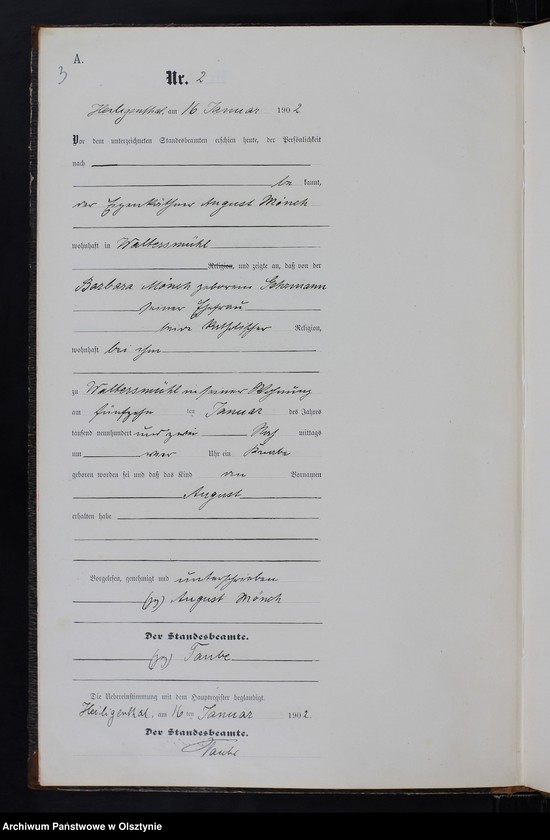 A.
3
Nr. 2
Heiligenthal, am 16 Januar 1902
Vor dem unterzeichneten Standesbeamten erschien heute, der Persönlichkeit
nach
be kannt,
der Eigenkäthner August Mönch
wohnhaft in Waltersmühl
Religion, und zeigte an, daß von der
Barbara Mönch geborenen Gehrmann
seiner Ehefrau
beide katholischer Religion,
wohnhaft bei ihm
zu Waltersmühl in seiner Wohnung
am fünfzehn ten Januar des Jahres
tausend neunhundert und zwei Nach mittags
um Uhr ein Knabe
geboren worden sei und daß das Kind den Vornamen
August
erhalten habe
Vorgelesen, genehmigt und unterschrieben
(gz) August Mönch
Der Standesbeamte.
(gz) Taube
Die Uebereinstimmung mit dem Hauptregister beglaubigt
Heiligenthal, am 16 ten Januar 1902.
Der Standesbeamte.
Taube
Archiwum Państwowe w Olsztynie